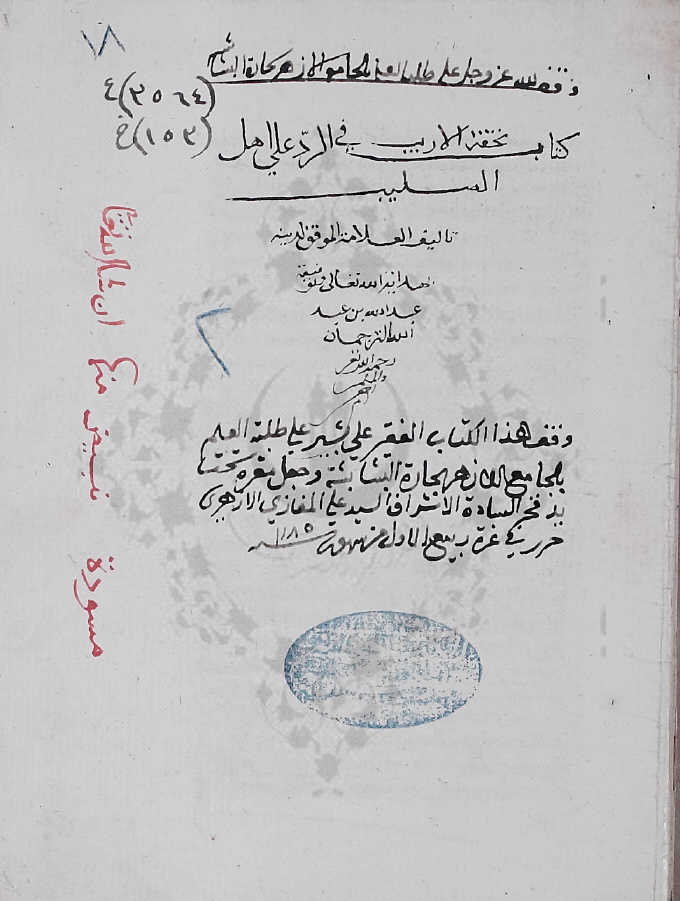 ١٨
وقف لله عز وجل على طلبة العلم بالجامع الازهر بحارة البشابشه
(٣٥٦٤) ع
(١٥٣) خ
كتاب تحفة الاريب في الرد علي اهل
الصليب
تاليف العلامة الموفق لدينه
بهداية الله تعالى وتوفيقه
عبد الله بن عبد
الله الترجمان
رحمه الله
وقف هذا الكتاب الفقير علي بشير علي طلبة العلم
بالجامع الازهر بحارة البشابشة وجعل مقره تحت
يد فخر السادة الاشراف السيد علي المغازي الازهري
حرر في غرة ربيع الاول من شهور سنه ١١٨٥
مسودة تبيض منها ان شا الله تعالى